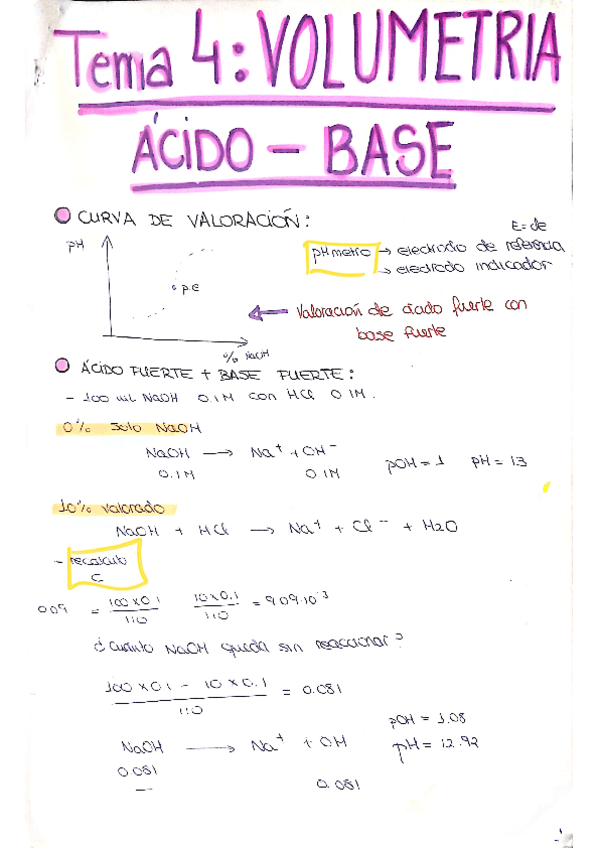 Tema 4: VOLUMETRIA
ÁCIDO – BASE
CURVA DE VALORACIÓN:
pH
pe
% NaOH
E = de
pHmetro → electrodo de referencia
→ electrodo indicador
Valoración de ácido fuerte con
base fuerte
ÁCIDO FUERTE + BASE FUERTE:
- 100 ml NaOH 0.1M con HCl 0.1M.
0% Solo NaOH
NaOH → Na⁺ + OH⁻
0.1M 0.1M
pOH = 1 pH = 13
10% valorado
NaOH + HCl → Na⁺ + Cl⁻ + H2O
- recalculo
C
0.09 = 100 x 0.1 / 110 10 x 0.1 / 110 = 9.09·10⁻³
¿Cuánto NaOH queda sin reaccionar?
100 x 0.1 - 10 x 0.1 / 110 = 0.081
NaOH → Na⁺ + OH
0.081 0.081
—
pOH = 1.08
pH = 12.92